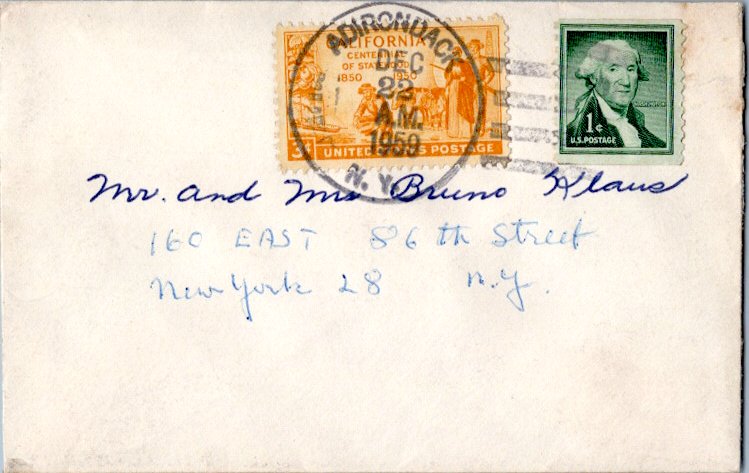 ADIRONDACK
DEC
22
A.M.
1959
N.Y.
CALIFORNIA
CENTENNIAL
OF STATEHOOD
1850 1950
3¢ UNITED STATES POSTAGE
WASHINGTON
1¢
U.S. POSTAGE
Mr. and Mrs Bruno Klaus
160 EAST 86 th Street
New York 28 N.Y.